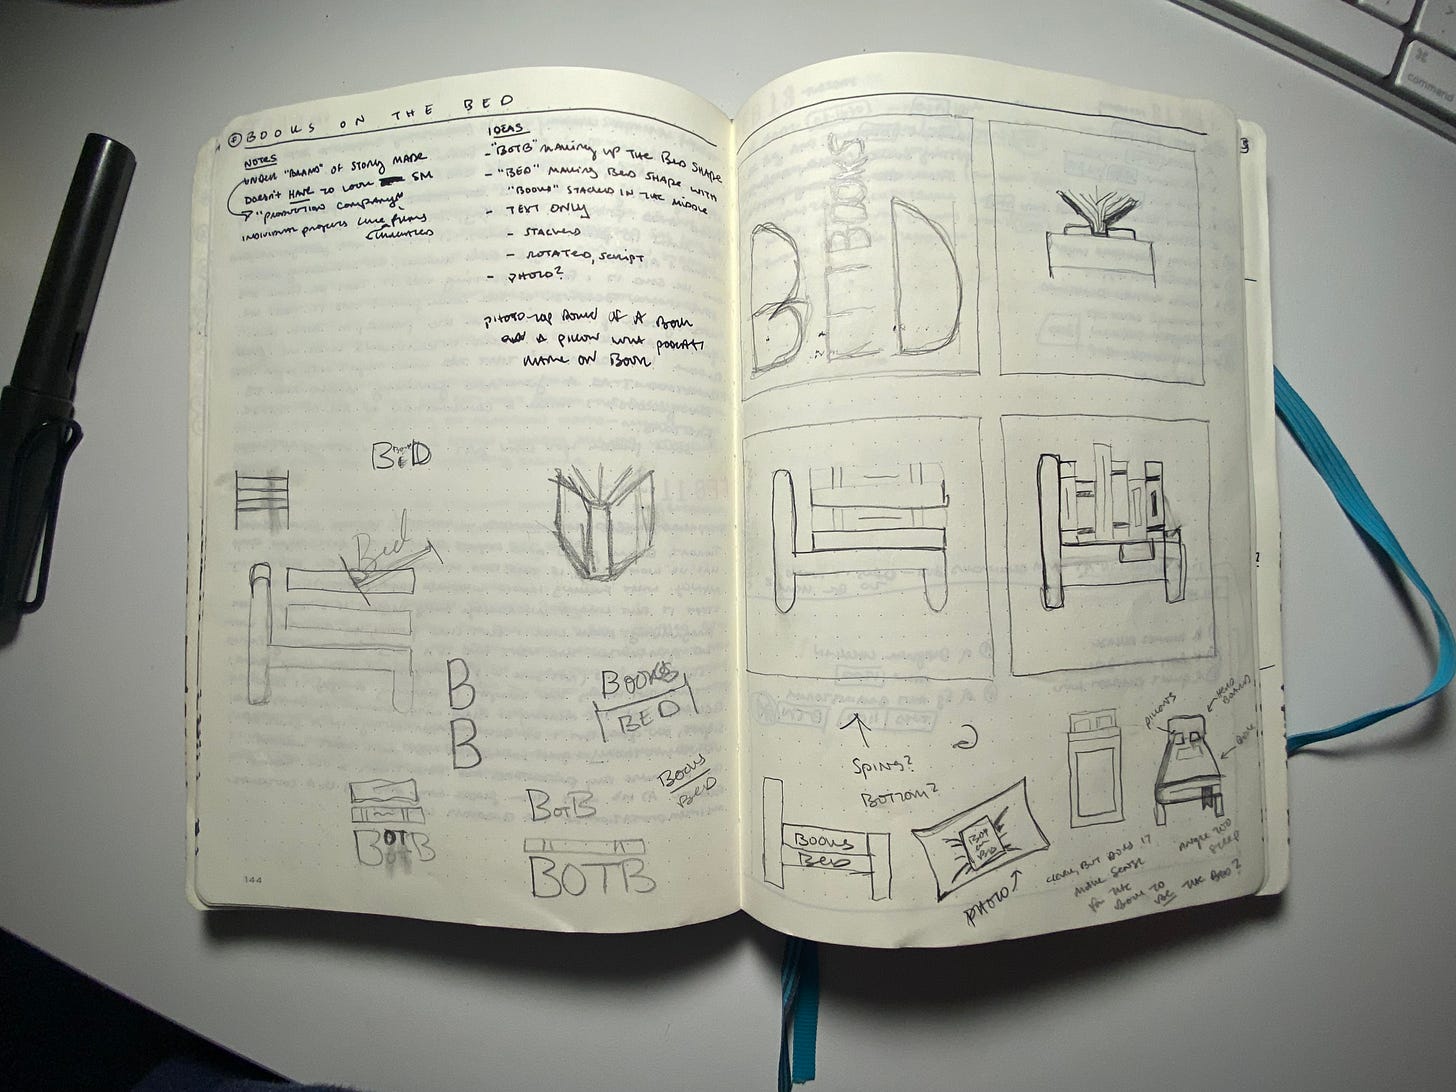 BOOKS ON THE BED
NOTES
UNDER "BRAND" OF STORY MADE
DOESN'T HAVE TO LOOK SM
"PRODUCTION COMPANY"
INDIVIDUAL PROJECTS LIKE FILMS
IDEAS
- "BOTB" MAKING UP THE BED SHAPE
- "BED" MAKING BED SHAPE WITH
"BOOKS" STACKED IN THE MIDDLE
- TEXT ONLY
- STACKED
- ROTATED, SCRIPT
- PHOTO?
PHOTO-TOP DOWN OF A BOOK
AND A PILLOW WITH PODCAST
NAME ON BOOK
BED
Bed
B
B
BOOKS
BED
BOOKS
BED
BOTB
BOTB
BOTB
144
B BOOKS D
SPINE?
BOTTOM?
BOOKS
BED
BOT
BED
PHOTO
PILLOWS
HEAD
BOARD
BOOK
ANGLE TOO
STEEP
CLEVER, BUT DOES IT
MAKE SENSE
FOR THE
BOOK TO
BE THE BED?
command